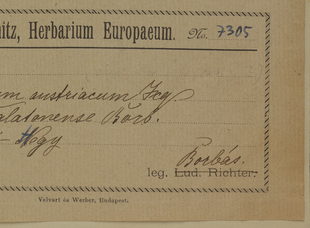 nitz, Herbarium Europaeum. No. 7305
um austriacum Jcq
alatonense Borb.
- Hegy
Borbás.
leg. Lud. Richter.
Velvart és Werber, Budapest.